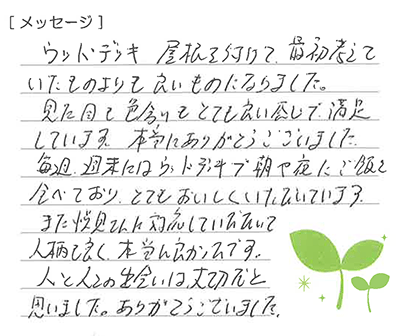 [メッセージ]
ウッドデッキ 屋根を付けて、最初考えて
いたものよりも良いものになりました。
見た目も色合いもとても良い感じで、満足
しています。本当にありがとうございました。
毎週、週末にはウッドデッキで朝や夜にご飯を
食べており、とてもおいしくいただいています。
また悦見さんに対応していただいて
人柄も良く、本当に良かったです。
人と人との出会いは大切だと
思いました。ありがとうございました。